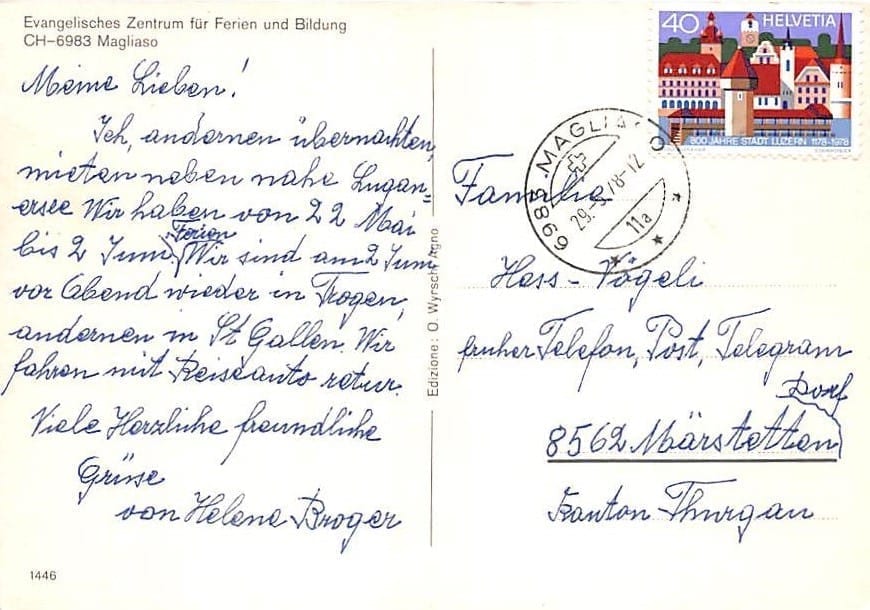 Evangelisches Zentrum für Ferien und Bildung
CH-6983 Magliaso
Meine Lieben!
Ich, andernen übernachten,
mieten neben nahe Lugan=
ersee Wir haben von 22 Mai
Ferien
bis 2 Juni, Wir sind am 2 Juni
vor Abend wieder in Trogen,
andernen in St Gallen. Wir
fahren mit Reiseauto retur.
Viele Herzliche freundliche
Grüse
von Helena Broger
1446
Edizione: O. Wyrsch, Agno
40 HELVETIA
800 JAHRE STADT LUZERN 1178-1978
6983 MAGLIASO
29.-5.78-12
11a
Familie
Hass-Vögeli
früher Telefon, Post, Telegram
Dorf
8562 Märstetten
Kanton-Thurgau